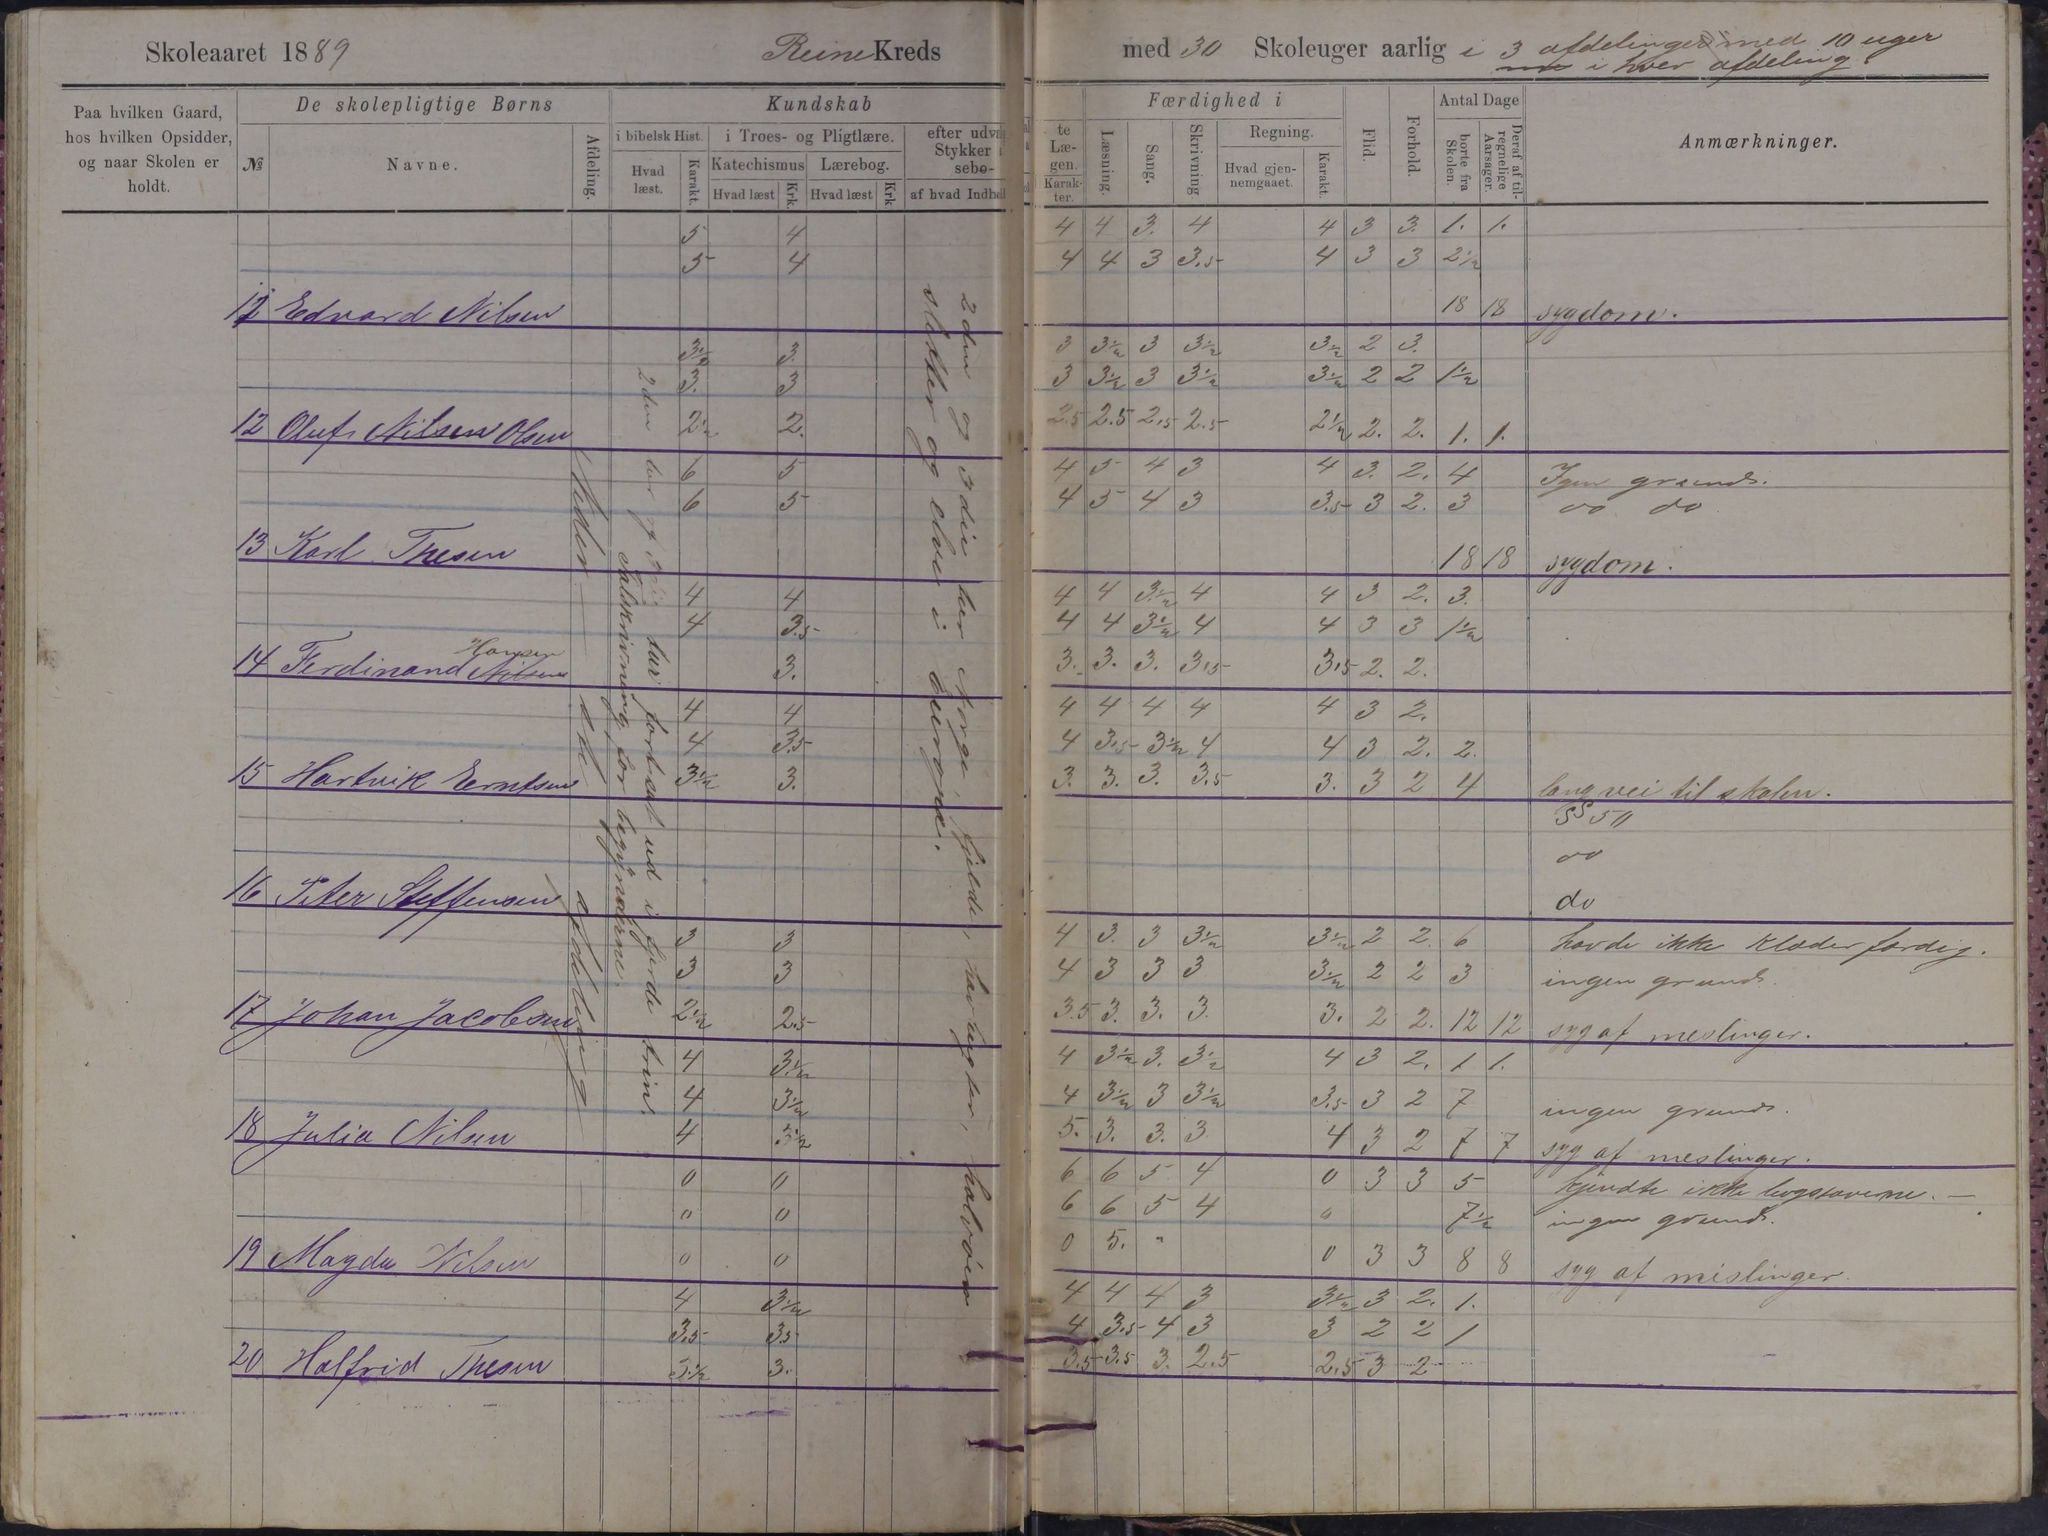 Skoleaaret 1889 Reine Kreds med 30 Skoleuger aarlig i 3 afdelinger med 10 uger
i hver afdeling.
Paa hvilken Gaard, hos hvilken Opsidder, og naar Skolen er holdt.
De skolepligtige Børns
№ Navne. Afdeling.
Kundskab
i bibelsk Hist. Hvad læst. Karakt.
i Troes- og Pligtlære.
Katechismus Hvad læst Krk.
Lærebog. Hvad læst Krk
efter udva
Stykker i
sebo-
af hvad Indhol
te Læ-
gen.
Karak-
ter.
Færdighed i
Læsning. Sang. Skrivning
Regning. Hvad gjen-
nemgaaet. Karakt.
Flid. Forhold.
Antal Dage
borte fra Skolen. Deraf af til-
regnelige Aarsager.
Anmærkninger.
5 4 4 4 3. 4 4 3 3. 1. 1.
5 4 4 4 3 3.5 4 3 3 2½
12 Edvard Nilsen 18 18 sygdom.
3½ 3. 3 3½ 3 3½ 3½ 2 3.
3. 3 3 3½ 3 3½ 3½ 2 2 1½
12 Oluf Nilsen Olsen 2½ 2. 2.5 2.5 2.5 2.5 2½ 2. 2. 1. 1.
6 5 4 5 4 3 4 3. 2. 4 Igen grund.
6 5 4 5 4 3 3.5 3 2. 3 do do
13 Karl Thesen 18 18 sygdom.
4 4 4 4 3½ 4 4 3 2. 3.
4 3.5 4 4 3½ 4 4 3 3 1½
Hansen
14 Ferdinand Nilsen 3. 3. 3. 3. 3.5 3.5 2. 2.
4 4 4 4 4 4 4 3 2.
4 3.5 4 3.5 3½ 4 4 3 2. 2.
15 Hartvik Erntsen 3½ 3. 3. 3. 3. 3.5 3. 3 2 4 lang vei til skolen.
do
16 Peter Steffensen do
3 3 4 3. 3 3½ 3½ 2 2. 6 havde ikke klæder færdig.
3. 3 4 3 3 3 3½ 2 2 3 ingen grund.
17 Johan Jacobsen 2½ 2.5 3.5 3. 3. 3. 3. 2 2. 12 12 syg af meslinger.
4 3½ 4 3½ 3. 3½ 4 3 2. 1 1.
4 3½ 4 3½ 3 3½ 3.5 3 2 7 ingen grund.
18 Julia Nilsen 4 3½ 5. 3. 3. 3 4 3 2 7 7 syg af meslinger.
0 0 6 6 5 4 0 3 3 5 kjendte ikke bogstaverne. —
0 0 6 6 5 4 0 7½ ingen grund.
19 Magda Nilsen 0 0 0 5. " 0 3 3 8 8 syg af mislinger.
4 3½ 4 4 4 3 3½ 3 2. 1.
3.5 3.5 4 3.5 4 3 3 2 2 1
20 Halfrid Thesen 3.½ 3. 3.5 3.5 3. 2.5 2.5 3 2
Nederste afdeling
2den har og 3die har fortsat ud i fjerde trin.
Takskrivning for begynderne.
2den og 3die har Norge, fjelde, havbugter, halvøer
sletter og elve i Europa.